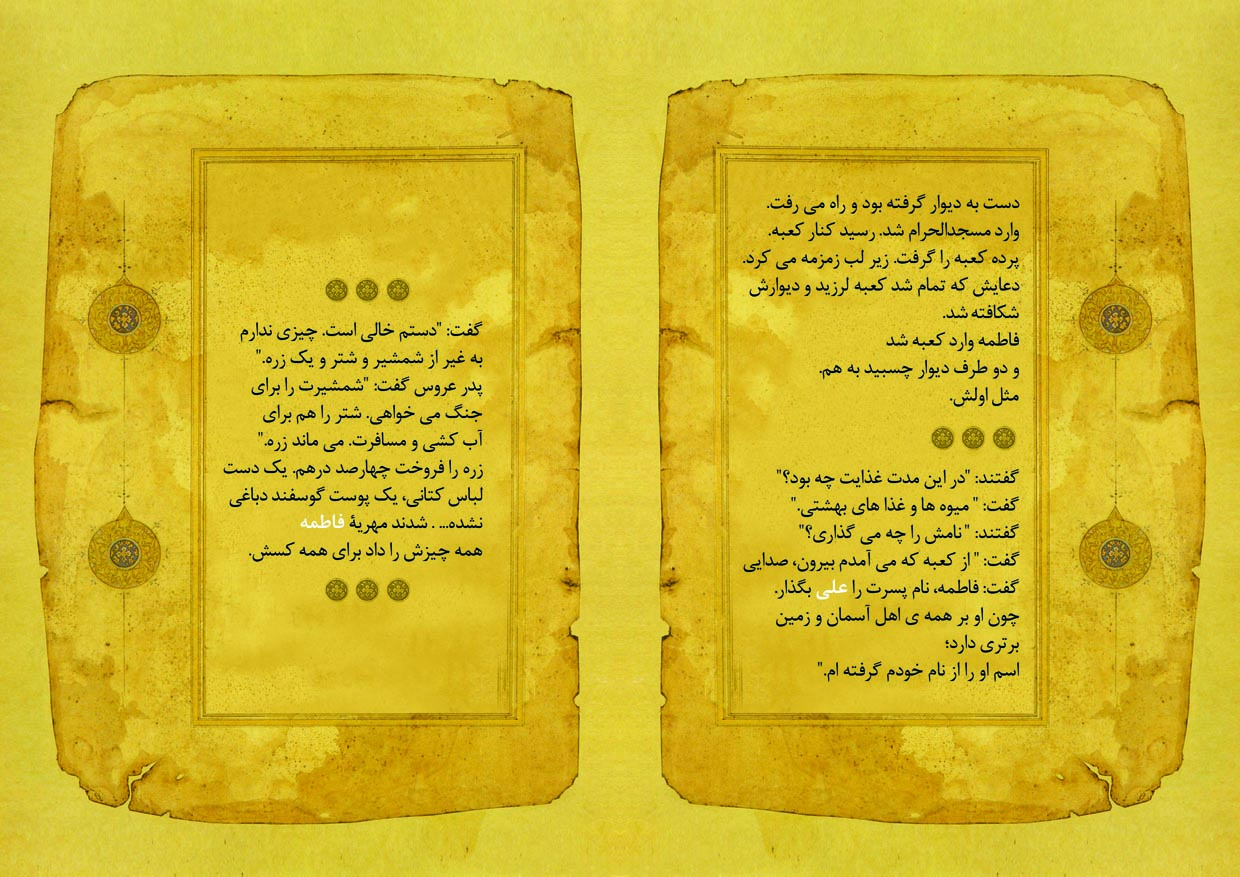 دست به دیوار گرفته بود و راه می رفت.
وارد مسجدالحرام شد. رسید کنار کعبه.
پرده کعبه را گرفت. زیر لب زمزمه می کرد.
دعایش که تمام شد کعبه لرزید و دیوارش
شکافته شد.
فاطمه وارد کعبه شد
و دو طرف دیوار چسبید به هم.
مثل اولش.
گفتند: "در این مدت غذایت چه بود؟"
گفت: " میوه ها و غذا های بهشتی."
گفتند: "نامش را چه می گذاری؟"
گفت: " از کعبه که می آمدم بیرون، صدایی
گفت: فاطمه، نام پسرت را علی بگذار.
چون او بر همه ی اهل آسمان و زمین
برتری دارد؛
اسم او را از نام خودم گرفته ام."
گفت: "دستم خالی است. چیزی ندارم
به غیر از شمشیر و شتر و یک زره."
پدر عروس گفت: "شمشیرت را برای
جنگ می خواهی. شتر را هم برای
آب کشی و مسافرت. می ماند زره."
زره را فروخت چهارصد درهم. یک دست
لباس کتانی، یک پوست گوسفند دباغی
نشده... . شدند مهریهٔ فاطمه
همه چیزش را داد برای همه کسش.